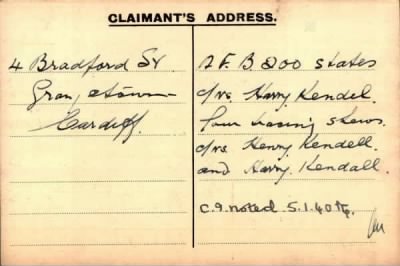 CLAIMANT'S ADDRESS.
4 Bradford St.
Grangetown
Cardiff.
B 200 states
c/vs. Harry Kendel.
c/vs. Henry Kendell.
and Harry. Kendall.
C.9. noted 5.1.40